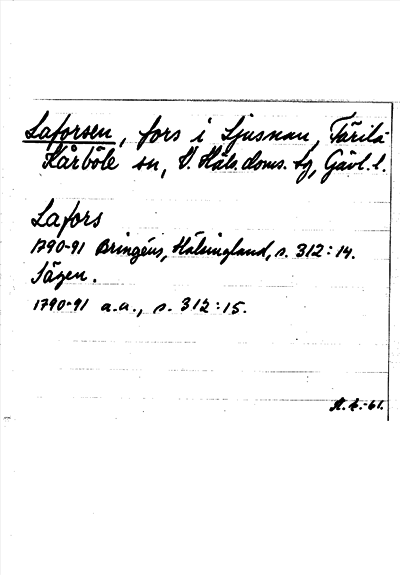 Laforsen, fors i Ljusnan, Färila-
Kårböle sn, V. Häls. doms. tg, Gävl. l.
Lafors
1790-91 Bringéus, Hälsingland, s. 312:14.
Sågen.
1790-91 a.a., s. 312:15.